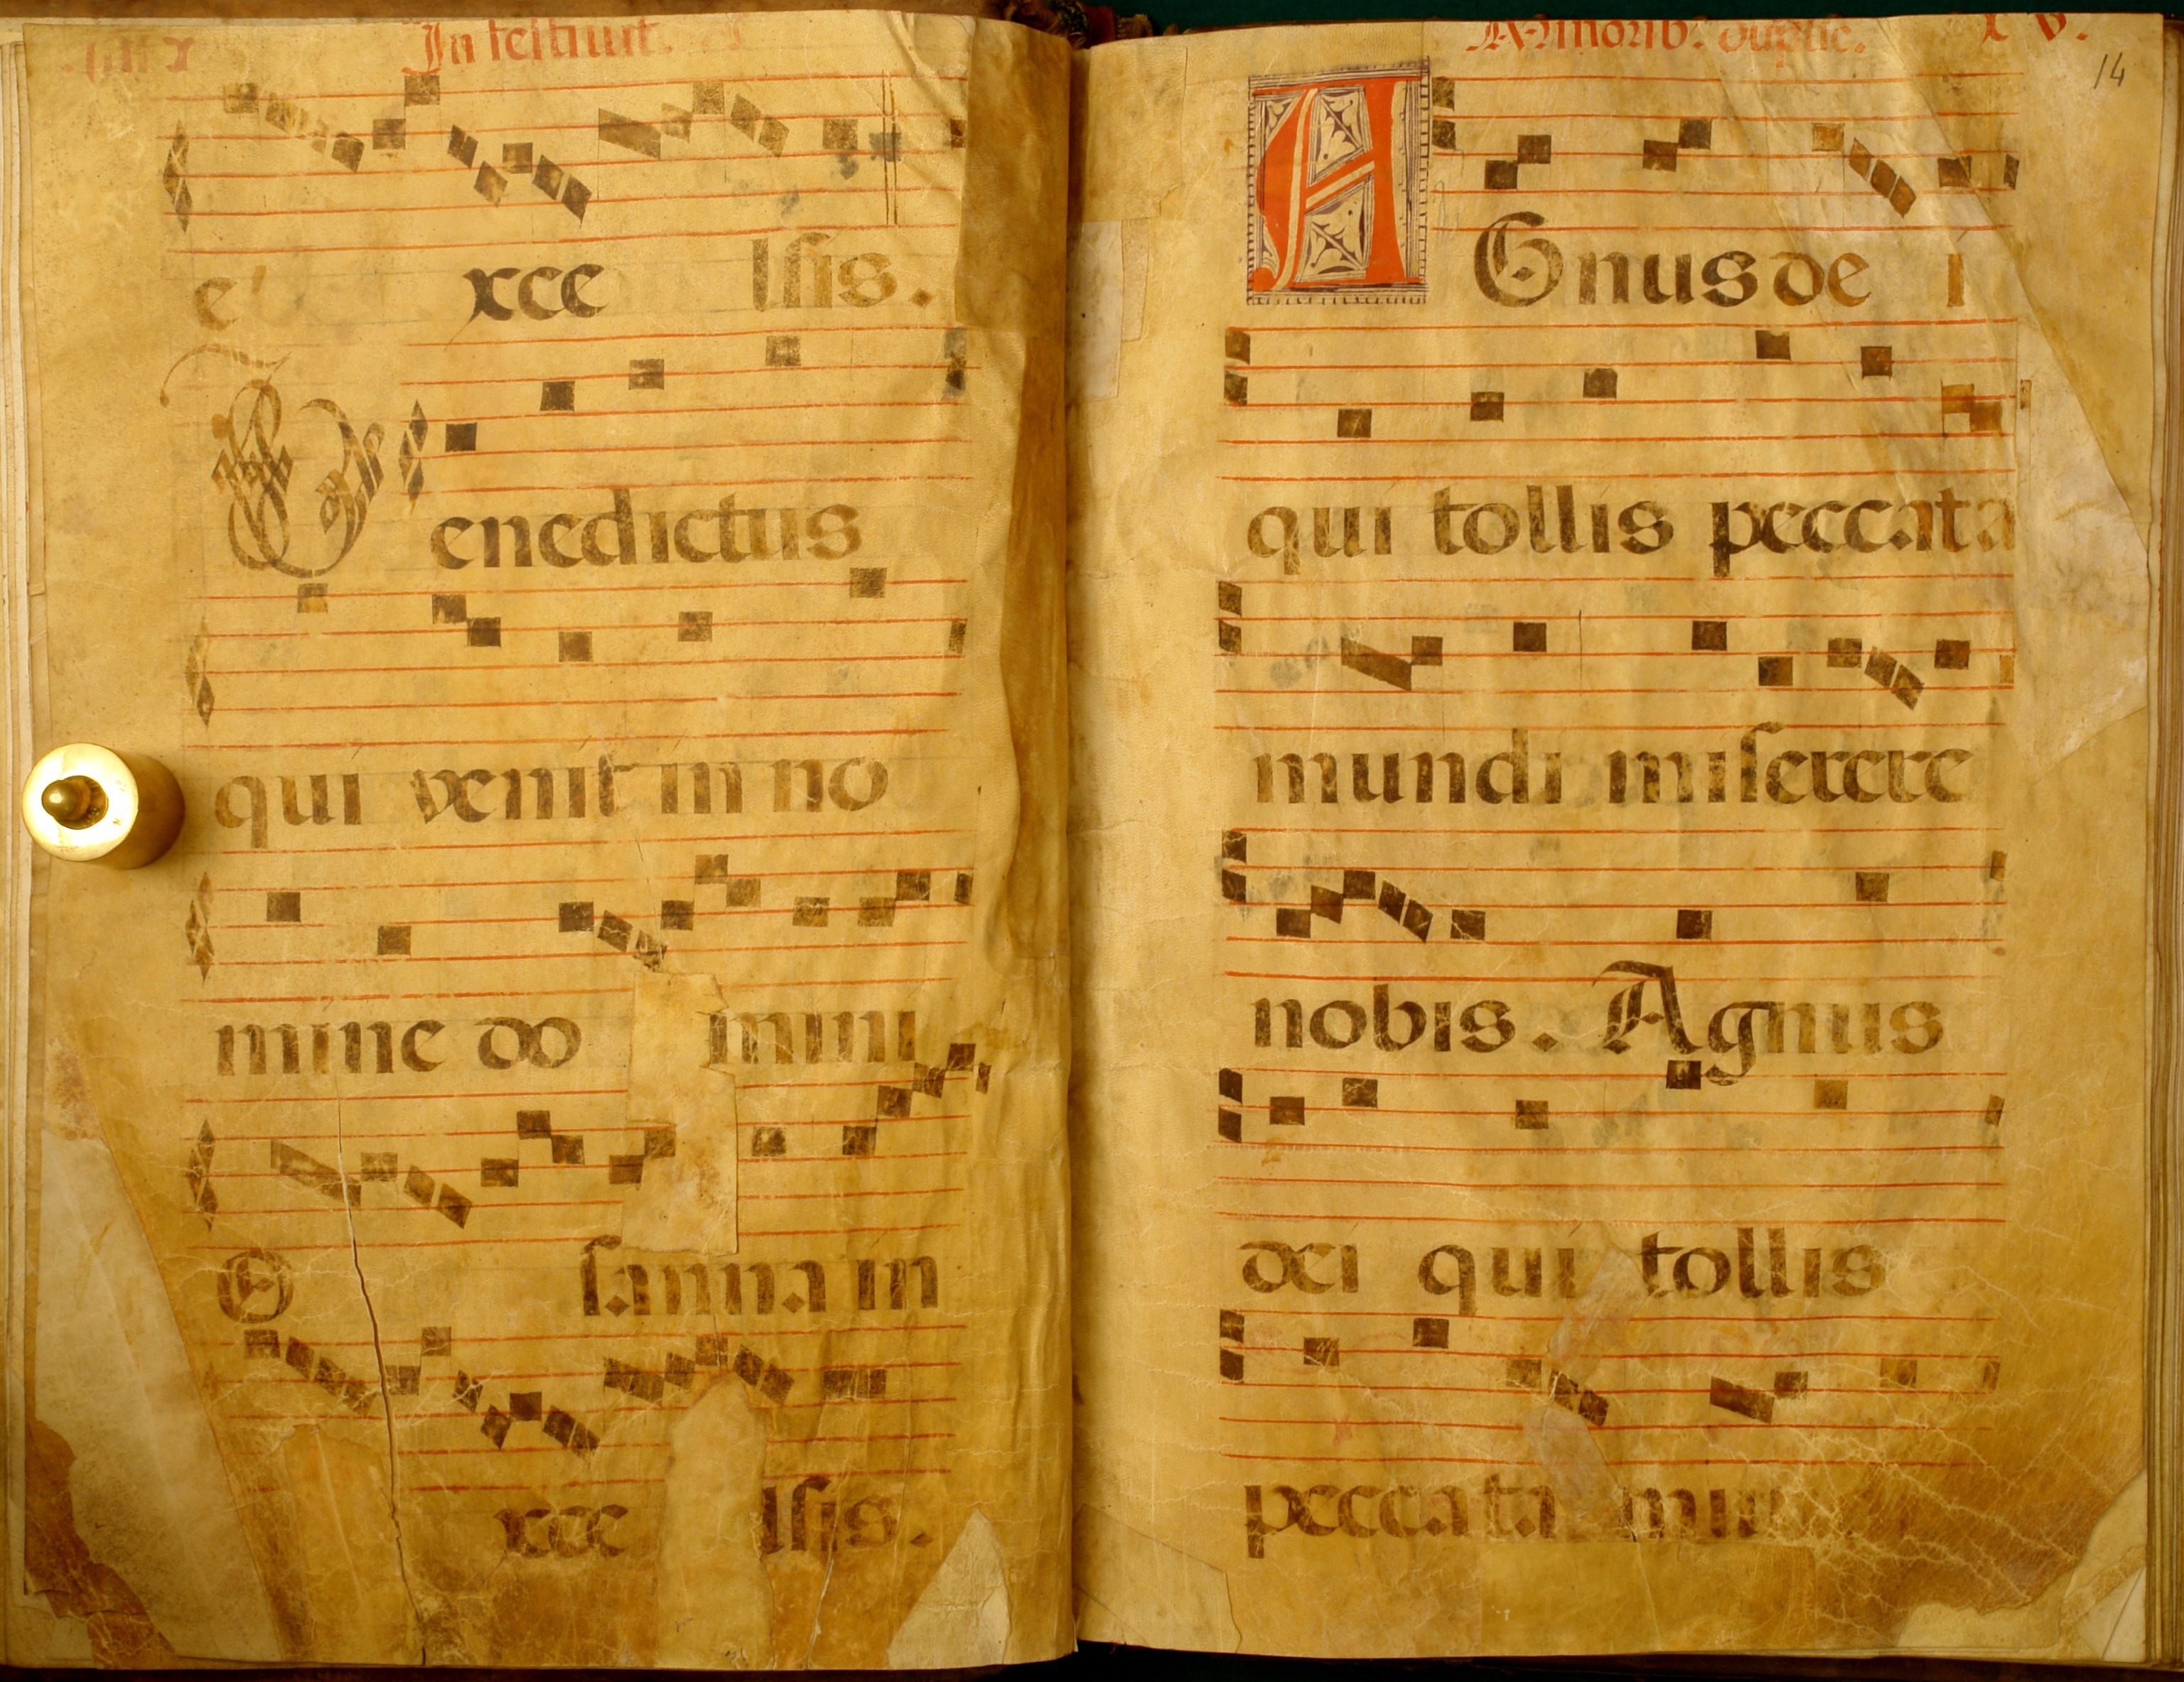 In festiuit.
e xce lsis.
Benedictus
qui venit in no
mine do mini
O sanna in
xce lsis.
minorib: duplic. XV.
14
AGnus de i
qui tollis peccata
mundi miserere
nobis. Agnus
dei qui tollis
peccata mun